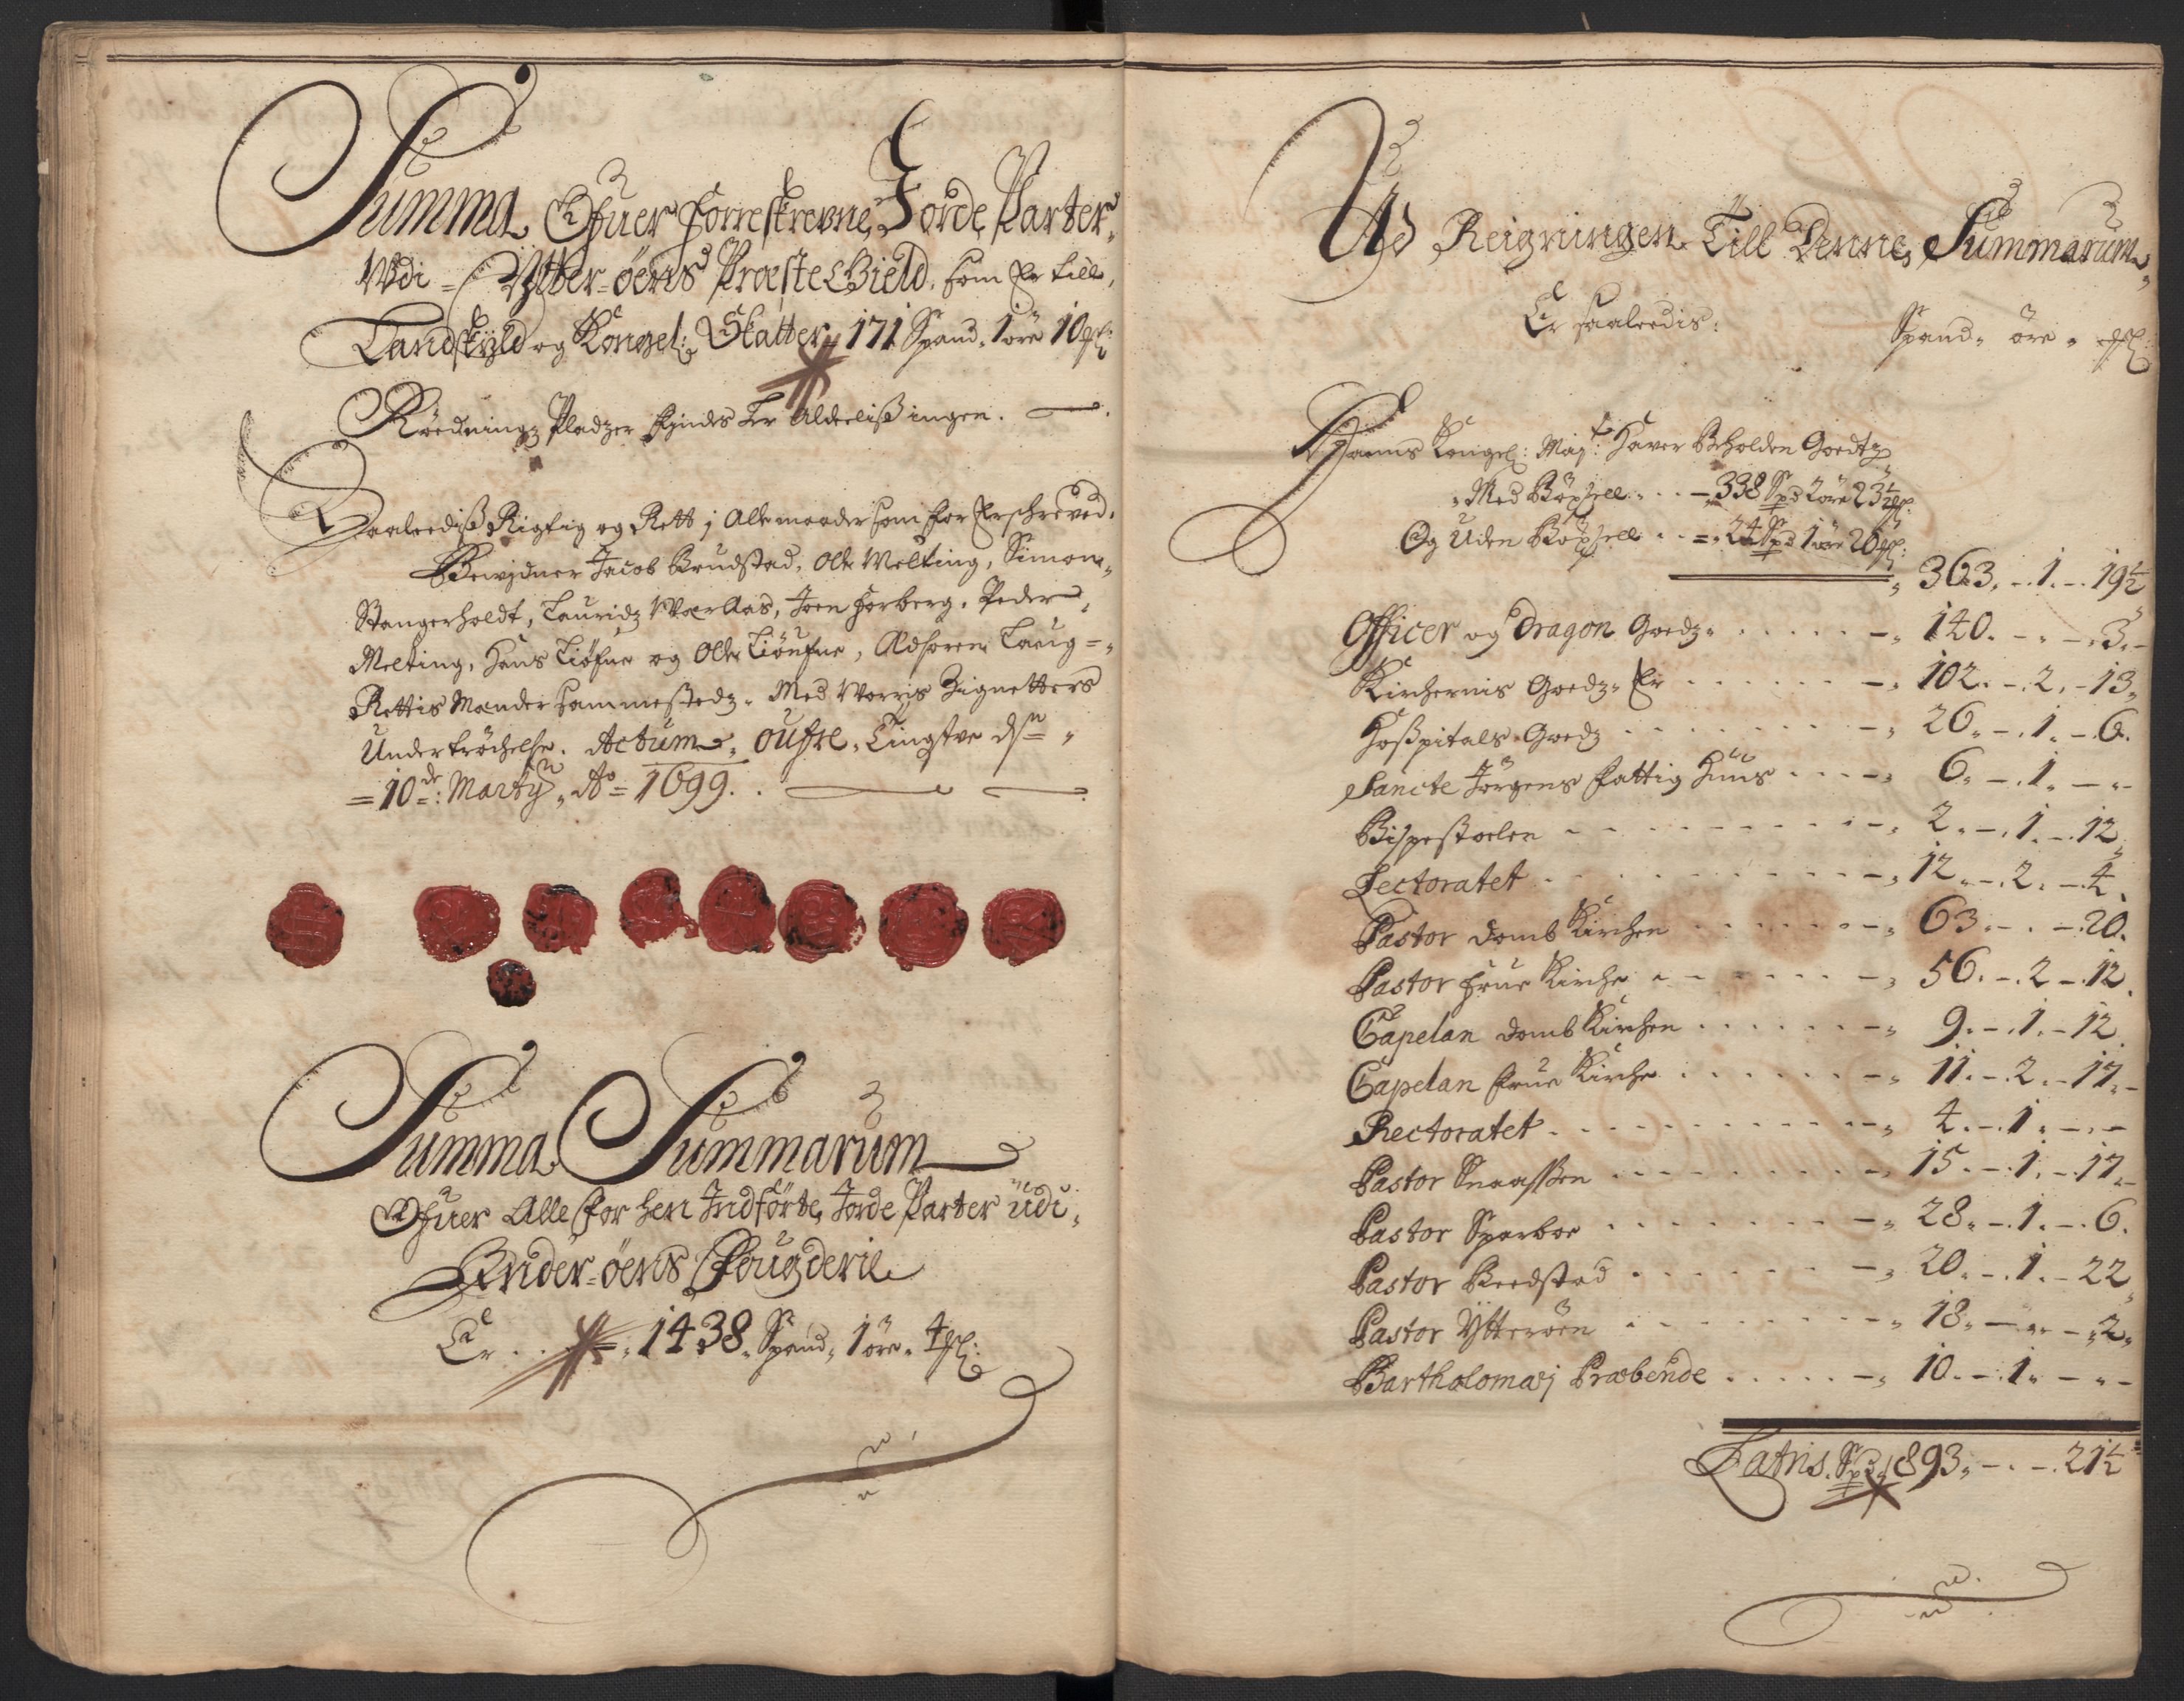 Summa Ofuer Forreskrevne Jorde Parter
Udi = Ytter-öens Præste Gield, som Er till
Landskyld og Kongel: Skatter, 171 Spand, 1 öre 10 ₰:
Röednings Pladzer findes Er Alderliß ingen.
Saaledis Rigtig og Rett j Alle maader som for Erschreved.
Bewidner Jacob Brudstad, Olle Melting, Simon
Stangerholdt, Lauridz Werdaas, Joen Forberg, Peder
Melting, Hans Tiöfne og Olle Tiöufne, Edsoren Laug=
Rettis Mænder sammestedz. Med Worris Zignetters
Undertröchelse. Actum, Oufre, Tingstue dn
= 10de: Marty, Ao = 1699.
Summa Summarum
Ofuer Alle for hen Indförte, Jorde Parter udi
Inder-öens Fougderie
Er . . 1438. Spand, 1 öre. 4 ₰:
Ud Reigningen Till Denne, Summarum
Er saaledis:
Spand. öre. ₰:
Hanns Kongel: Majts: Haver Beholden Goedtz
Med Böxsell . . - 338 Spd 2 öre 23½ ₰:
Og Uden Böxsell . . = 24 Spd 1 öre 20 ₰:
363. - 1. - 19½
Officer og Dragon Goedz . . . . . - 140. - . - 3. -
Kirchernis Goedz. Er . . . . . . - 102. - 2. - 13.
Hospitals Goedz . . . . . . . . - 26. - 1. - 6.
Sancte Jörgens fattig Huus . . . - 6. - 1. - -
Bispestoelen - - - - - - - - - 2. - 1. - 12.
Lectoratet . . . . . . . . . . - 12. - 2. - 4.
Pastor Domb Kirchen . . . . . . - 63. - . - 20.
Pastor Frue Kirche . . . . . . - 56. - 2 - 12.
Capelan Domb Kirchen . . . . . . - 9. - 1. - 12.
Capelan Frue Kirche . . . . . . - 11. - 2. - 17. -
Rectoratet . . . . . . . . . . - 4. - 1. - -
Pastor Snaassen . . . . . . . . - 15. - 1. - 17. -
Pastor Sparboe . . . . . . . . - 28. - 1. - 6.
Pastor Beedstad . . . . . . . . - 20. - 1. - 22.
Pastor Ytteröen . . . . . . . . - 18. - . - 2.
Bartholomæj Præbende . . . . . - 10. - 1. - -
Latris. Spd. 893. - . - 21½